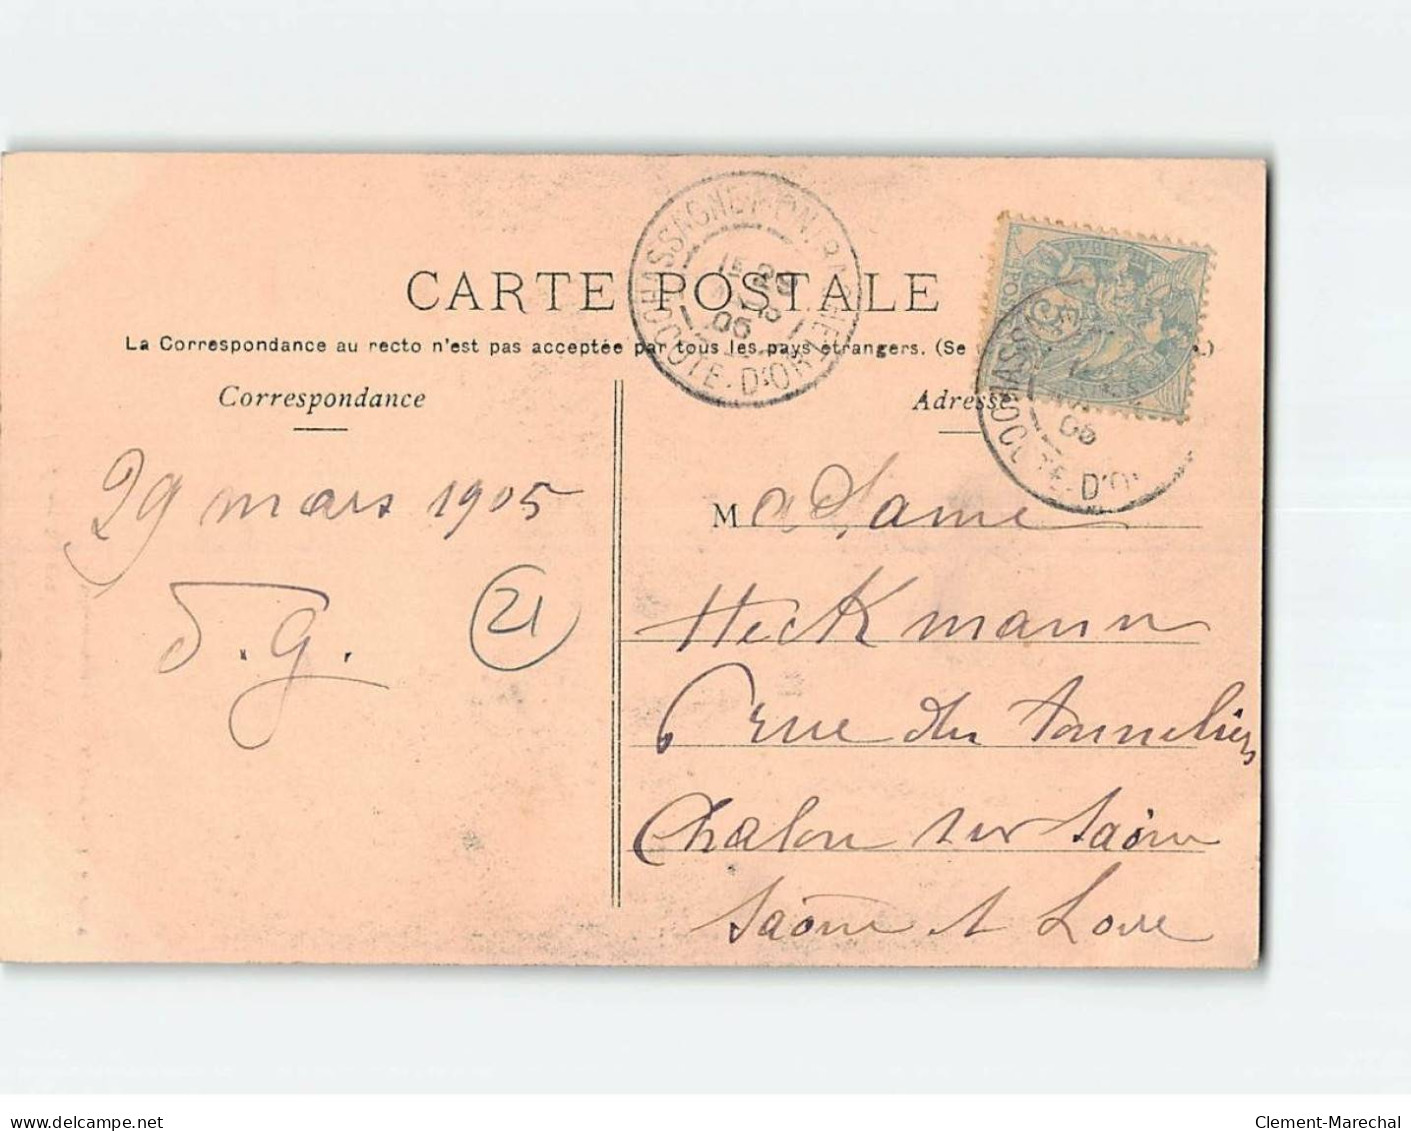 CHASSAGNE-MONTRACHET
COTE-D'OR
CARTE POSTALE
La Correspondance au recto n'est pas acceptée par tous les pays étrangers. (Se
Correspondance
Adresse
COTE-D'O
05
29 mars 1905
J. G.
21
Madame
Heckmann
6 rue des Tonneliers
Chalon sur Saône
Saône et Loire
www.delcampe.net
Clement-Marechal